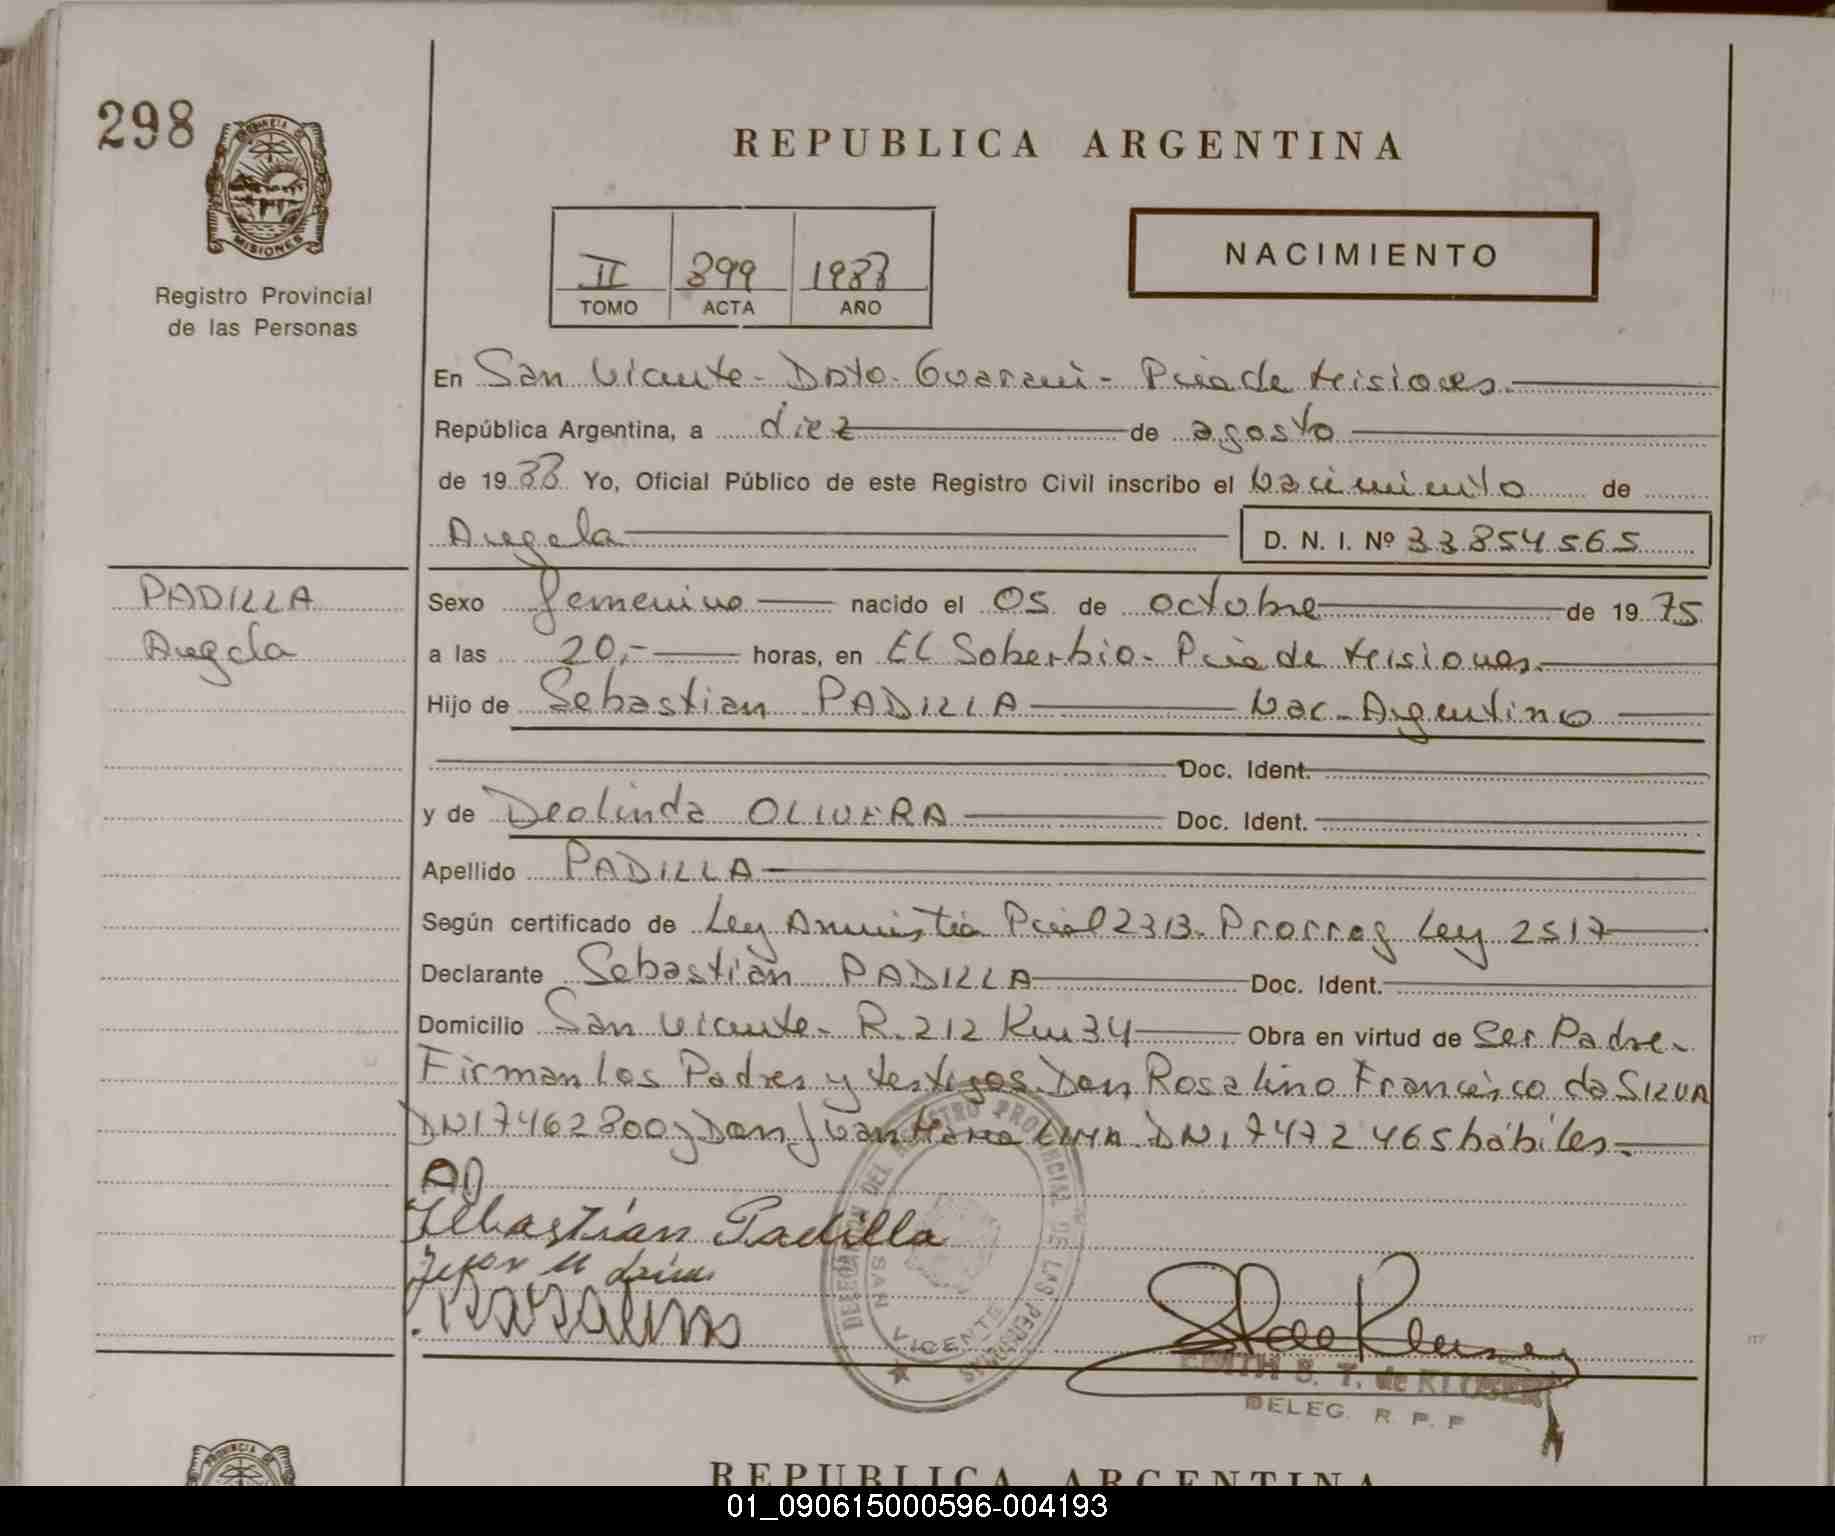 298
PROVINCIA DE
MISIONES
Registro Provincial
de las Personas
REPUBLICA ARGENTINA
NACIMIENTO
II 899 1988
TOMO ACTA AÑO
En San Vicente - Dpto. Guaraní - Pcia de Misiones.
República Argentina, a diez de agosto
de 1988 Yo, Oficial Público de este Registro Civil inscribo el Nacimiento de
Angela D. N. I. Nº 33854565
PADILLA
Angela
Sexo femenino nacido el 05 de octubre de 1975
a las 20,- horas, en El Soberbio - Pcia de Misiones.
Hijo de Sebastian PADILLA Nac. Argentino
Doc. Ident.
y de Deolinda OLIVERA Doc. Ident.
Apellido PADILLA
Según certificado de Ley Amnistía Pcial 2313. Prorrog Ley 2517
Declarante Sebastián PADILLA Doc. Ident.
Domicilio San Vicente - R. 212 Km 34 Obra en virtud de Ser Padre.
Firman los Padres y testigos Don Rosalino Francisco da SILVA
DNI 7462800 y Don Juan Maria LIMA DNI 7472465 hábiles.
Sebastián Padilla
Rosalino
DELEGACION DEL REGISTRO PROVINCIAL DE LAS PERSONAS
SAN VICENTE
EDITH S. T. de KLUSENER
DELEG. R. P. P
PROVINCIA DE
REPUBLICA ARGENTINA
01_090615000596-004193